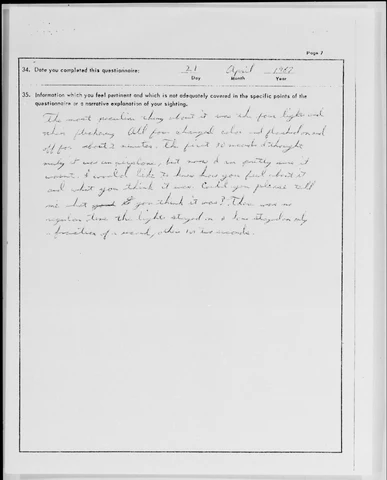 Page 7
34. Date you completed this questionnaire: 21 April 1967
Day Month Year
35. Information which you feel pertinent and which is not adequately covered in the specific points of the
questionnaire or a narrative explanation of your sighting.
The most peculiar thing about it was the four lights and
their flashing. All four changed color and flashed on and
off for about 2 minutes. The first 10 seconds I thought
maybe it was an airplane, but now I am pretty sure it
wasn't. I would like to know how you feel about it
and what you think it was. Could you please tell
me what you think it was? There was no
regular time the lights stayed on a time stayed on only
a fraction of a second, other to two seconds.